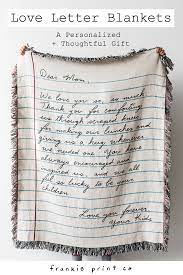 Love Letter Blankets
A Personalized
+ Thoughtful Gift
Dear Mom,
We love you so, so much.
Thank you for comforting
us through scraped knees
for making our lunches and
giving us a hug when we
needed one. You have
always encouraged and
us and we all
feel so lucky to be your
children.
Love you forever
Your kids
frankie print co